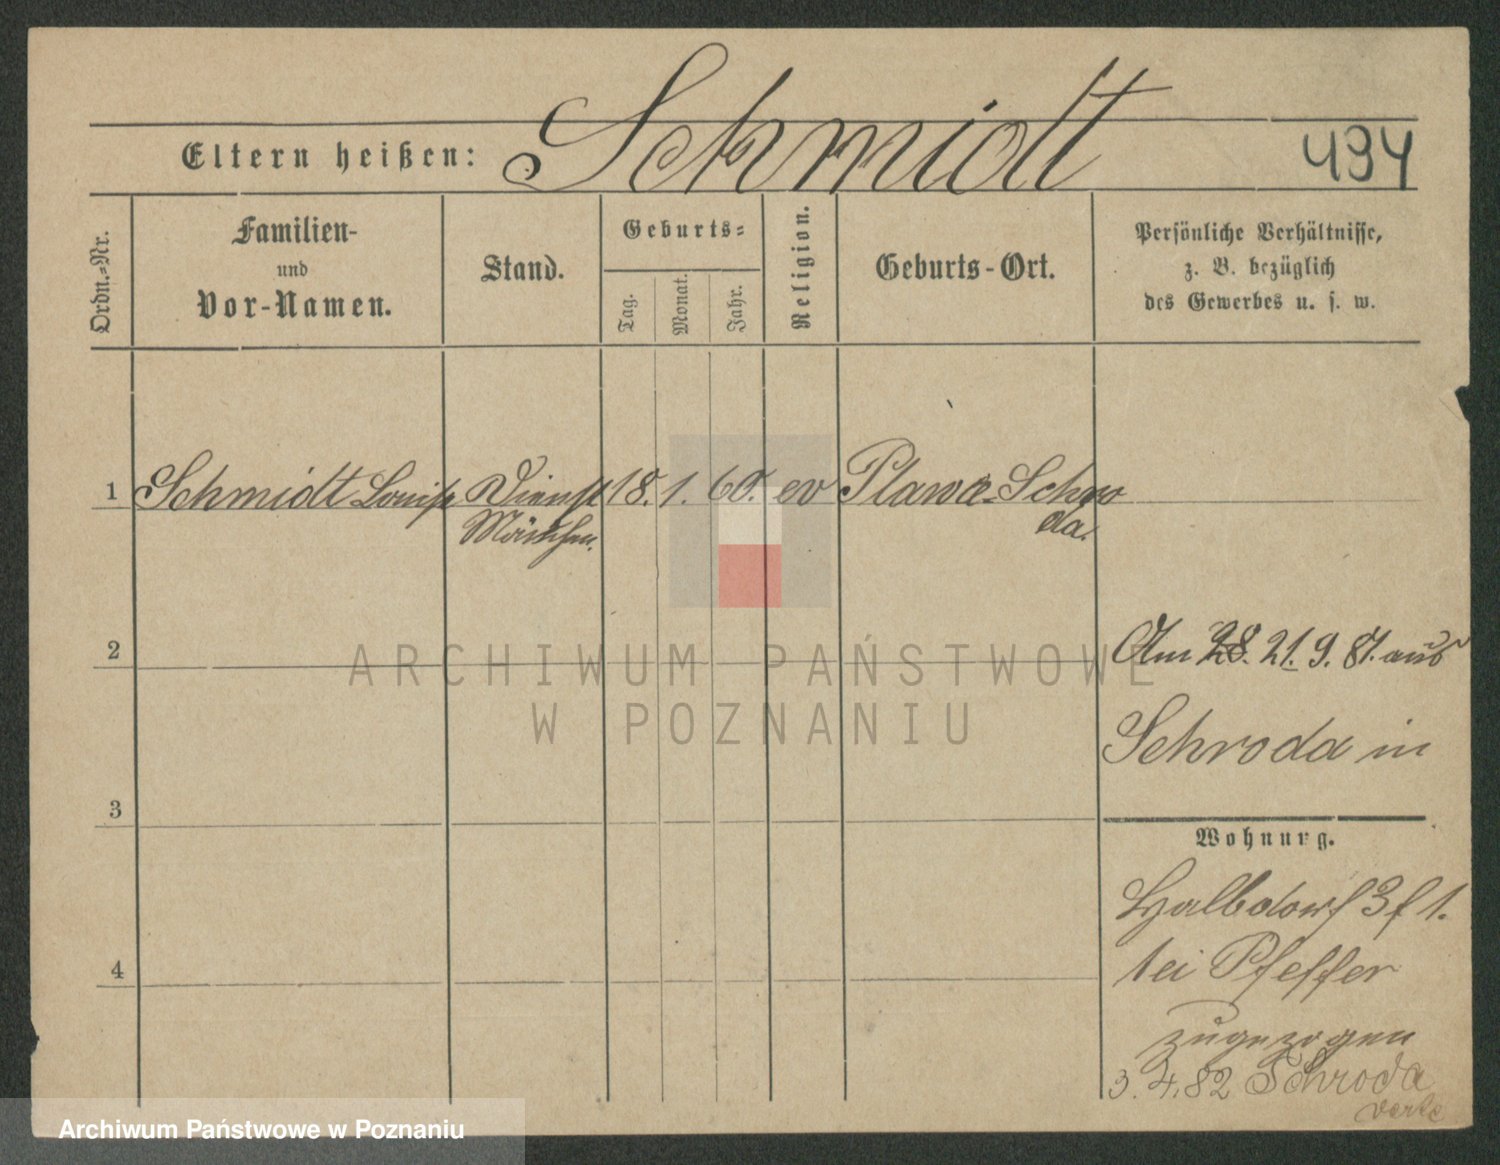 Eltern heißen: Schmidt 494
Ordn.-Nr.
Familien-
und
Vor-Namen.
Stand.
Geburts-
Tag.
Monat.
Jahr.
Religion.
Geburts-Ort.
Persönliche Verhältnisse,
z. B. bezüglich
des Gewerbes u. s. w.
1 Schmidt Louise Dienst 18. 1. 60. ev Plawce Schro
Mädchen. da.
2
Am 28. 21. 9. 81. aus
Schroda in
3
Wohnung.
Halbdorf 3 f 1.
bei Pfeffer
4
zugezogen
3. 4. 82 Schroda
ARCHIWUM PAŃSTWOWE
W POZNANIU
Archiwum Państwowe w Poznaniu